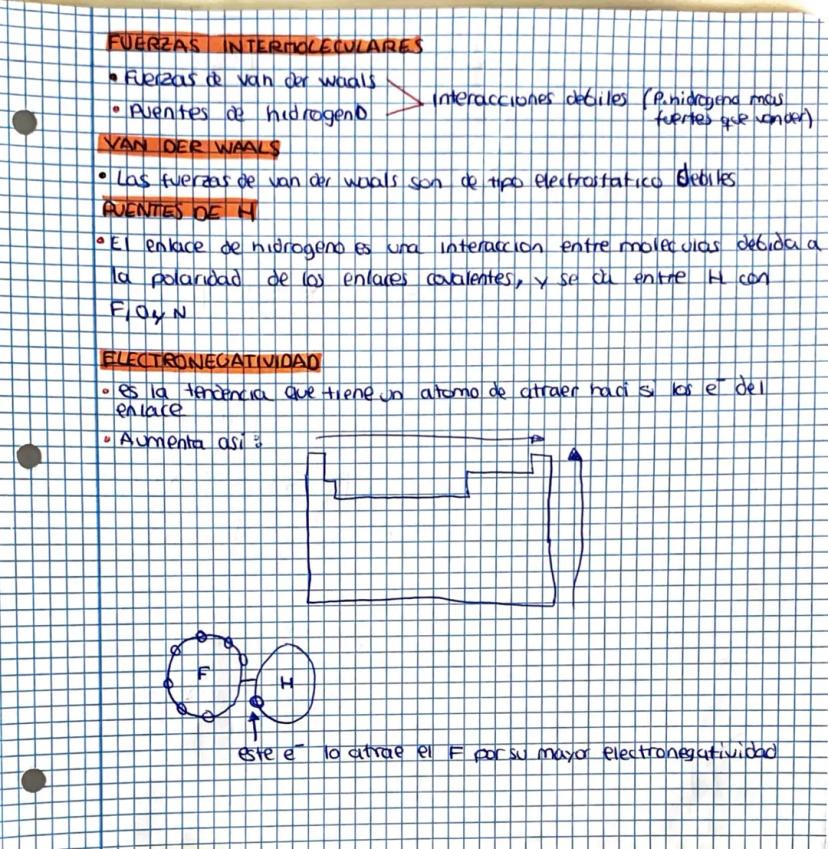 FUERZAS INTERMOLECULARES
• Fuerzas de van der waals
• Puentes de hidrogeno
Interacciones debiles (P.hidrogeno mas
fuertes que vander)
VAN DER WAALS
• Las fuerzas de van der waals son de tipo electrostatico debiles
PUENTES DE H
• El enlace de hidrogeno es una interaccion entre moleculas debida a
la polaridad de los enlaces covalentes, y se da entre H con
F, O y N
ELECTRONEGATIVIDAD
• es la tendencia que tiene un atomo de atraer haci si los e⁻ del
enlace
• Aumenta asi :
F
H
este e⁻ lo atrae el F por su mayor electronegatividad